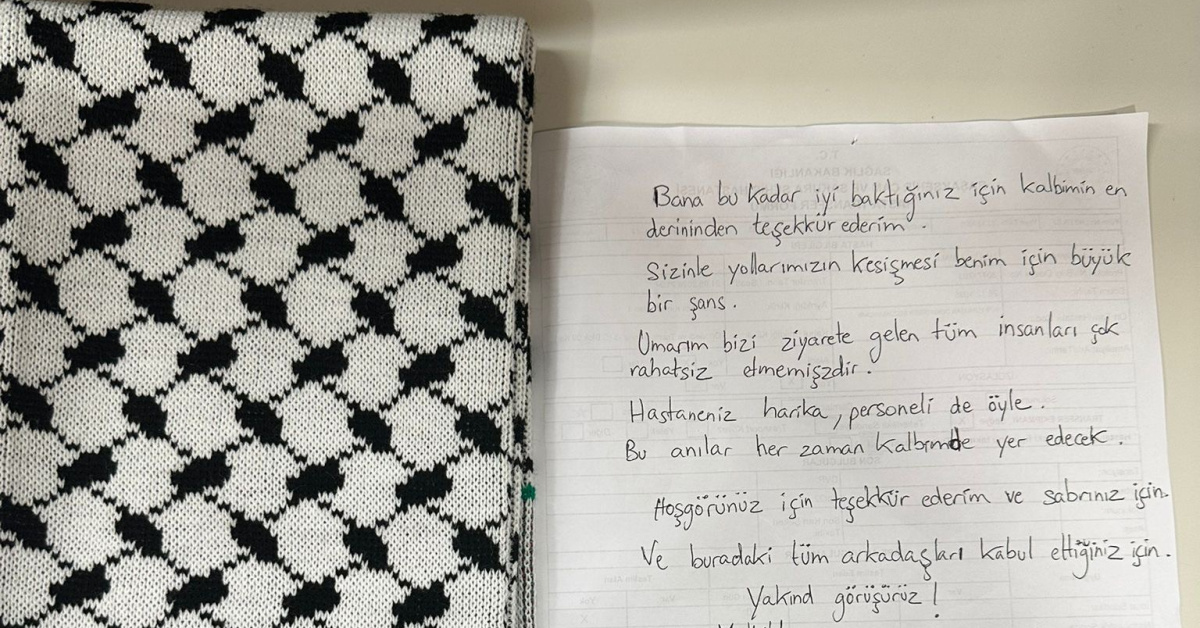 Bana bu kadar iyi baktığınız için kalbimin en
derininden teşekkür ederim.
Sizinle yollarımızın kesişmesi benim için büyük
bir şans.
Umarım bizi ziyarete gelen tüm insanları çok
rahatsiz etmemişzdir.
Hastaneniz harika, personeli de öyle.
Bu anılar her zaman kalbımde yer edecek.
Hoşgörünüz için teşekkür ederim ve sabrınız için.
Ve buradaki tüm arkadaşları kabul ettiğiniz için.
Yakınd görüşürüz!